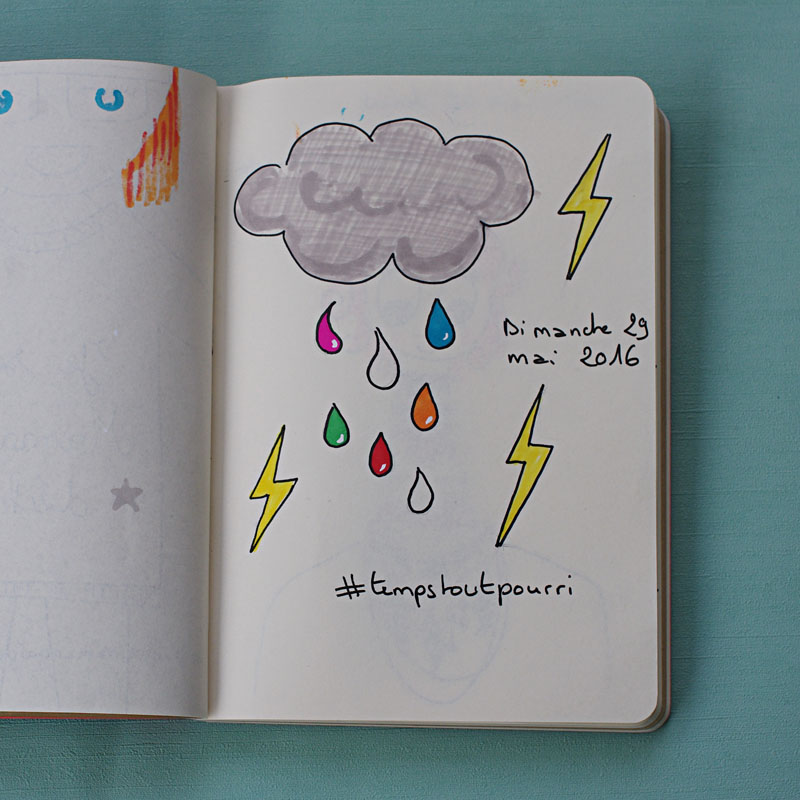 Dimanche 29
mai 2016
#tempstoutpourri